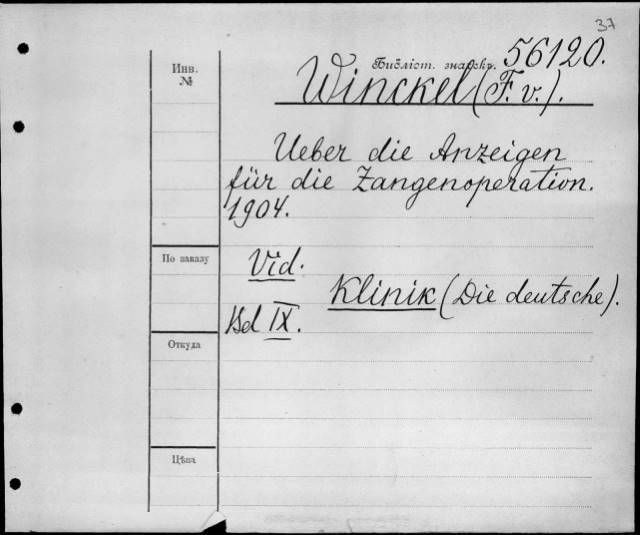 37
Библіот. значекъ. 56120.
Инв.
№
Winckel (F. v.).
Ueber die Anzeigen
für die Zangenoperation.
1904.
По заказу
Vid.
Klinik (Die deutsche).
Bd IX.
Откуда
Цѣна